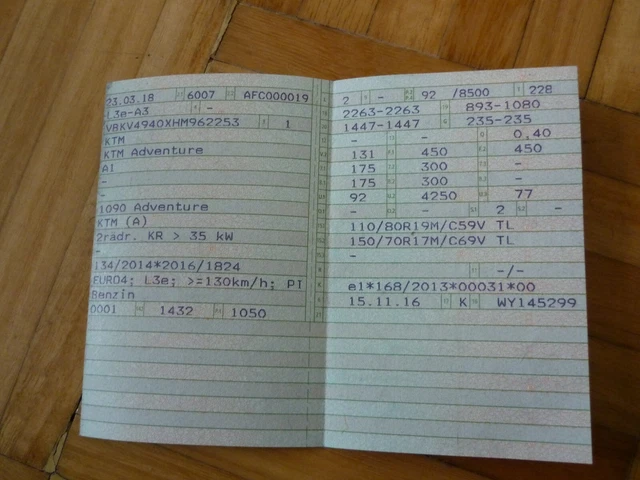 23.03.18 6007 AFC000019
L3e-A3 -
VBKV4940XHM962253 1
KTM
KTM Adventure
A1
-
-
1090 Adventure
KTM (A)
2rädr. KR > 35 kW
-
134/2014*2016/1824
EURO4; L3e; >=130km/h; PI
Benzin
0001 1432 1050
2 - 92 /8500 228
2263-2263 893-1080
1447-1447 235-235
- - 0,40
131 450 450
175 300 -
175 300 -
92 4250 77
- - 2 -
110/80R19M/C59V TL
150/70R17M/C69V TL
-
-/-
e1*168/2013*00031*00
15.11.16 K WY145299